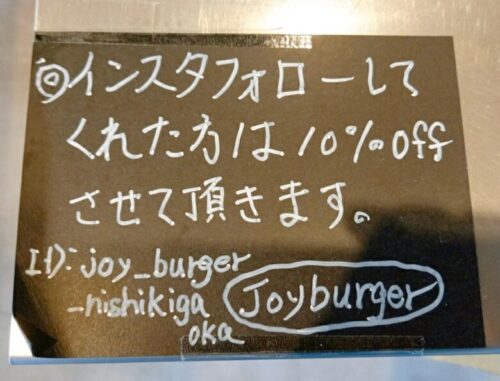 ◎インスタフォローして
くれた方は10%off
させて頂きます。
ID:joy_burger
_nishikiga
oka
Joyburger